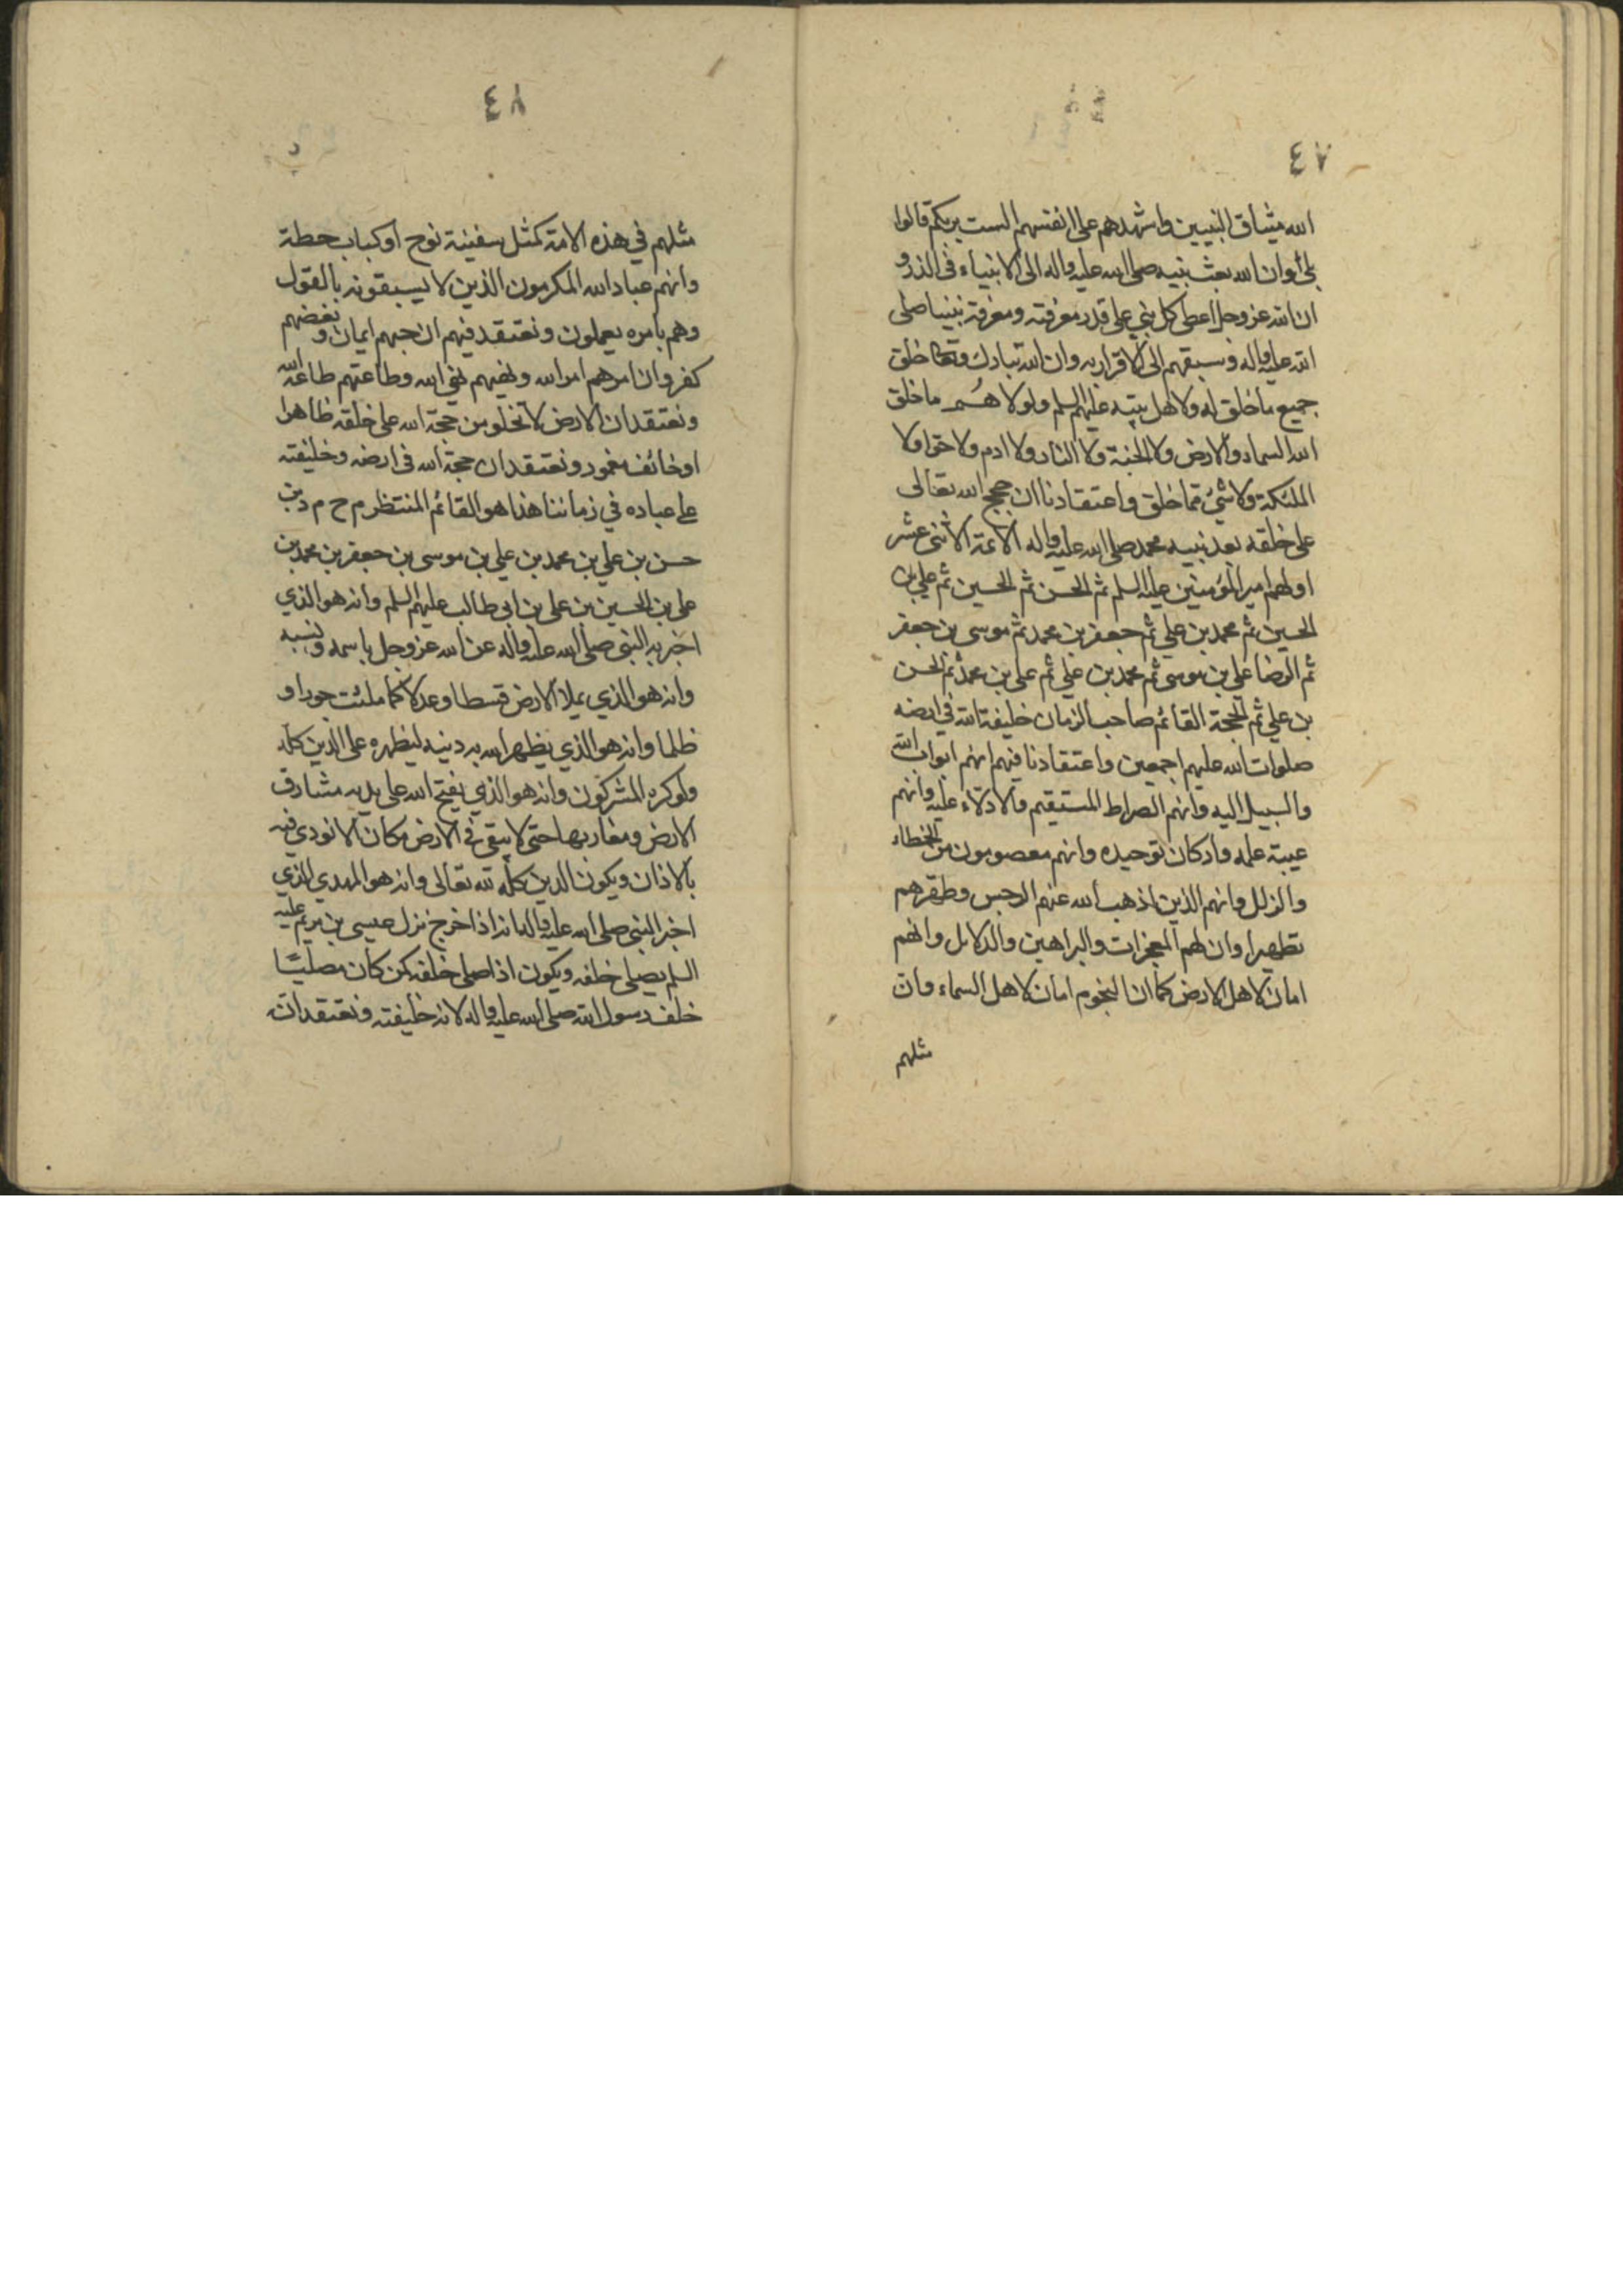 ٤٧
الله ميثاق النبيين واشهدهم على انفسهم الست بربكم قالوا
بلى وان الله بعث نبيه صلى الله عليه واله الى الانبياء فى الذر و
ان الله عز وجل اعطى كل نبي على قدر معرفته ومعرفة نبينا صلى
الله عليه واله وسبقهم الى الاقرار به وان الله تبارك وتعا خلق
جميع ما خلق له ولاهل بيته عليهم السلم ولولا هم ما خلق
الله السماء والارض ولا الجنة ولا النار ولا ادم ولا حوا ولا
الملئكة ولا شئ مما خلق واعتقادنا ان حجج الله تعالى
على خلقه بعد نبيه محمد صلى الله عليه واله الائمة الاثنى عشر
اولهم امير المؤمنين عليه السلم ثم الحسن ثم الحسين ثم علي بن
الحسين ثم محمد بن علي ثم جعفر بن محمد ثم موسى بن جعفر
ثم الرضا علي بن موسى ثم محمد بن علي ثم علي بن محمد ثم الحسن
بن علي ثم الحجة القائم صاحب الزمان خليفة الله في ارضه
صلوات الله عليهم اجمعين واعتقادنا فيهم انهم ابواب الله
والسبيل اليه وانهم الصراط المستقيم والادلاء عليه وانهم
عيبة علمه واركان توحيده وانهم معصومون من الخطاء
والزلل وانهم الذين اذهب الله عنهم الرجس وطهرهم
تطهيرا وان لهم المعجزات والبراهين والدلايل وانهم
امان لاهل الارض كما ان النجوم امان لاهل السماء وان
مثلهم
٤٨
مثلهم في هذه الامة كمثل سفينة نوح او كباب حطة
وانهم عباد الله المكرمون الذين لا يسبقونه بالقول
وهم بامره يعملون ونعتقد فيهم ان حبهم ايمان و بغضهم
كفر وان امرهم امر الله ونهيهم نهى الله وطاعتهم طاعة الله
ونعتقد ان الارض لا تخلو من حجة الله على خلقه ظاهرا
او خائف مغمور ونعتقد ان حجة الله فى ارضه وخليفته
على عباده في زماننا هذا هو القائم المنتظر م ح م د بن
حسن بن علي بن محمد بن علي بن موسى بن جعفر بن محمد بن
على بن الحسين بن على بن ابى طالب عليهم السلم وانه هو الذي
اخبر به النبى صلى الله عليه واله عن الله عز وجل باسمه ونسبه
وانه هو الذي يملا الارض قسطا وعدلا كما ملئت جورا و
ظلما وانه هو الذي يظهر الله به دينه ليظهره على الدين كله
ولو كره المشركون وانه هو الذي يفتح الله على يديه مشارق
الارض ومغاربها حتى لا يبقى في الارض مكان الا نودي فيه
بالاذان ويكون الدين كله لله تعالى وانه هو المهدي الذي
اخبر النبى صلى الله عليه واله انه اذا خرج نزل عيسى بن مريم عليه
السلم يصلى خلفه ويكون اذا صلى خلفه كمن كان مصليا
خلف رسول الله صلى الله عليه واله لانه خليفته ونعتقد ان